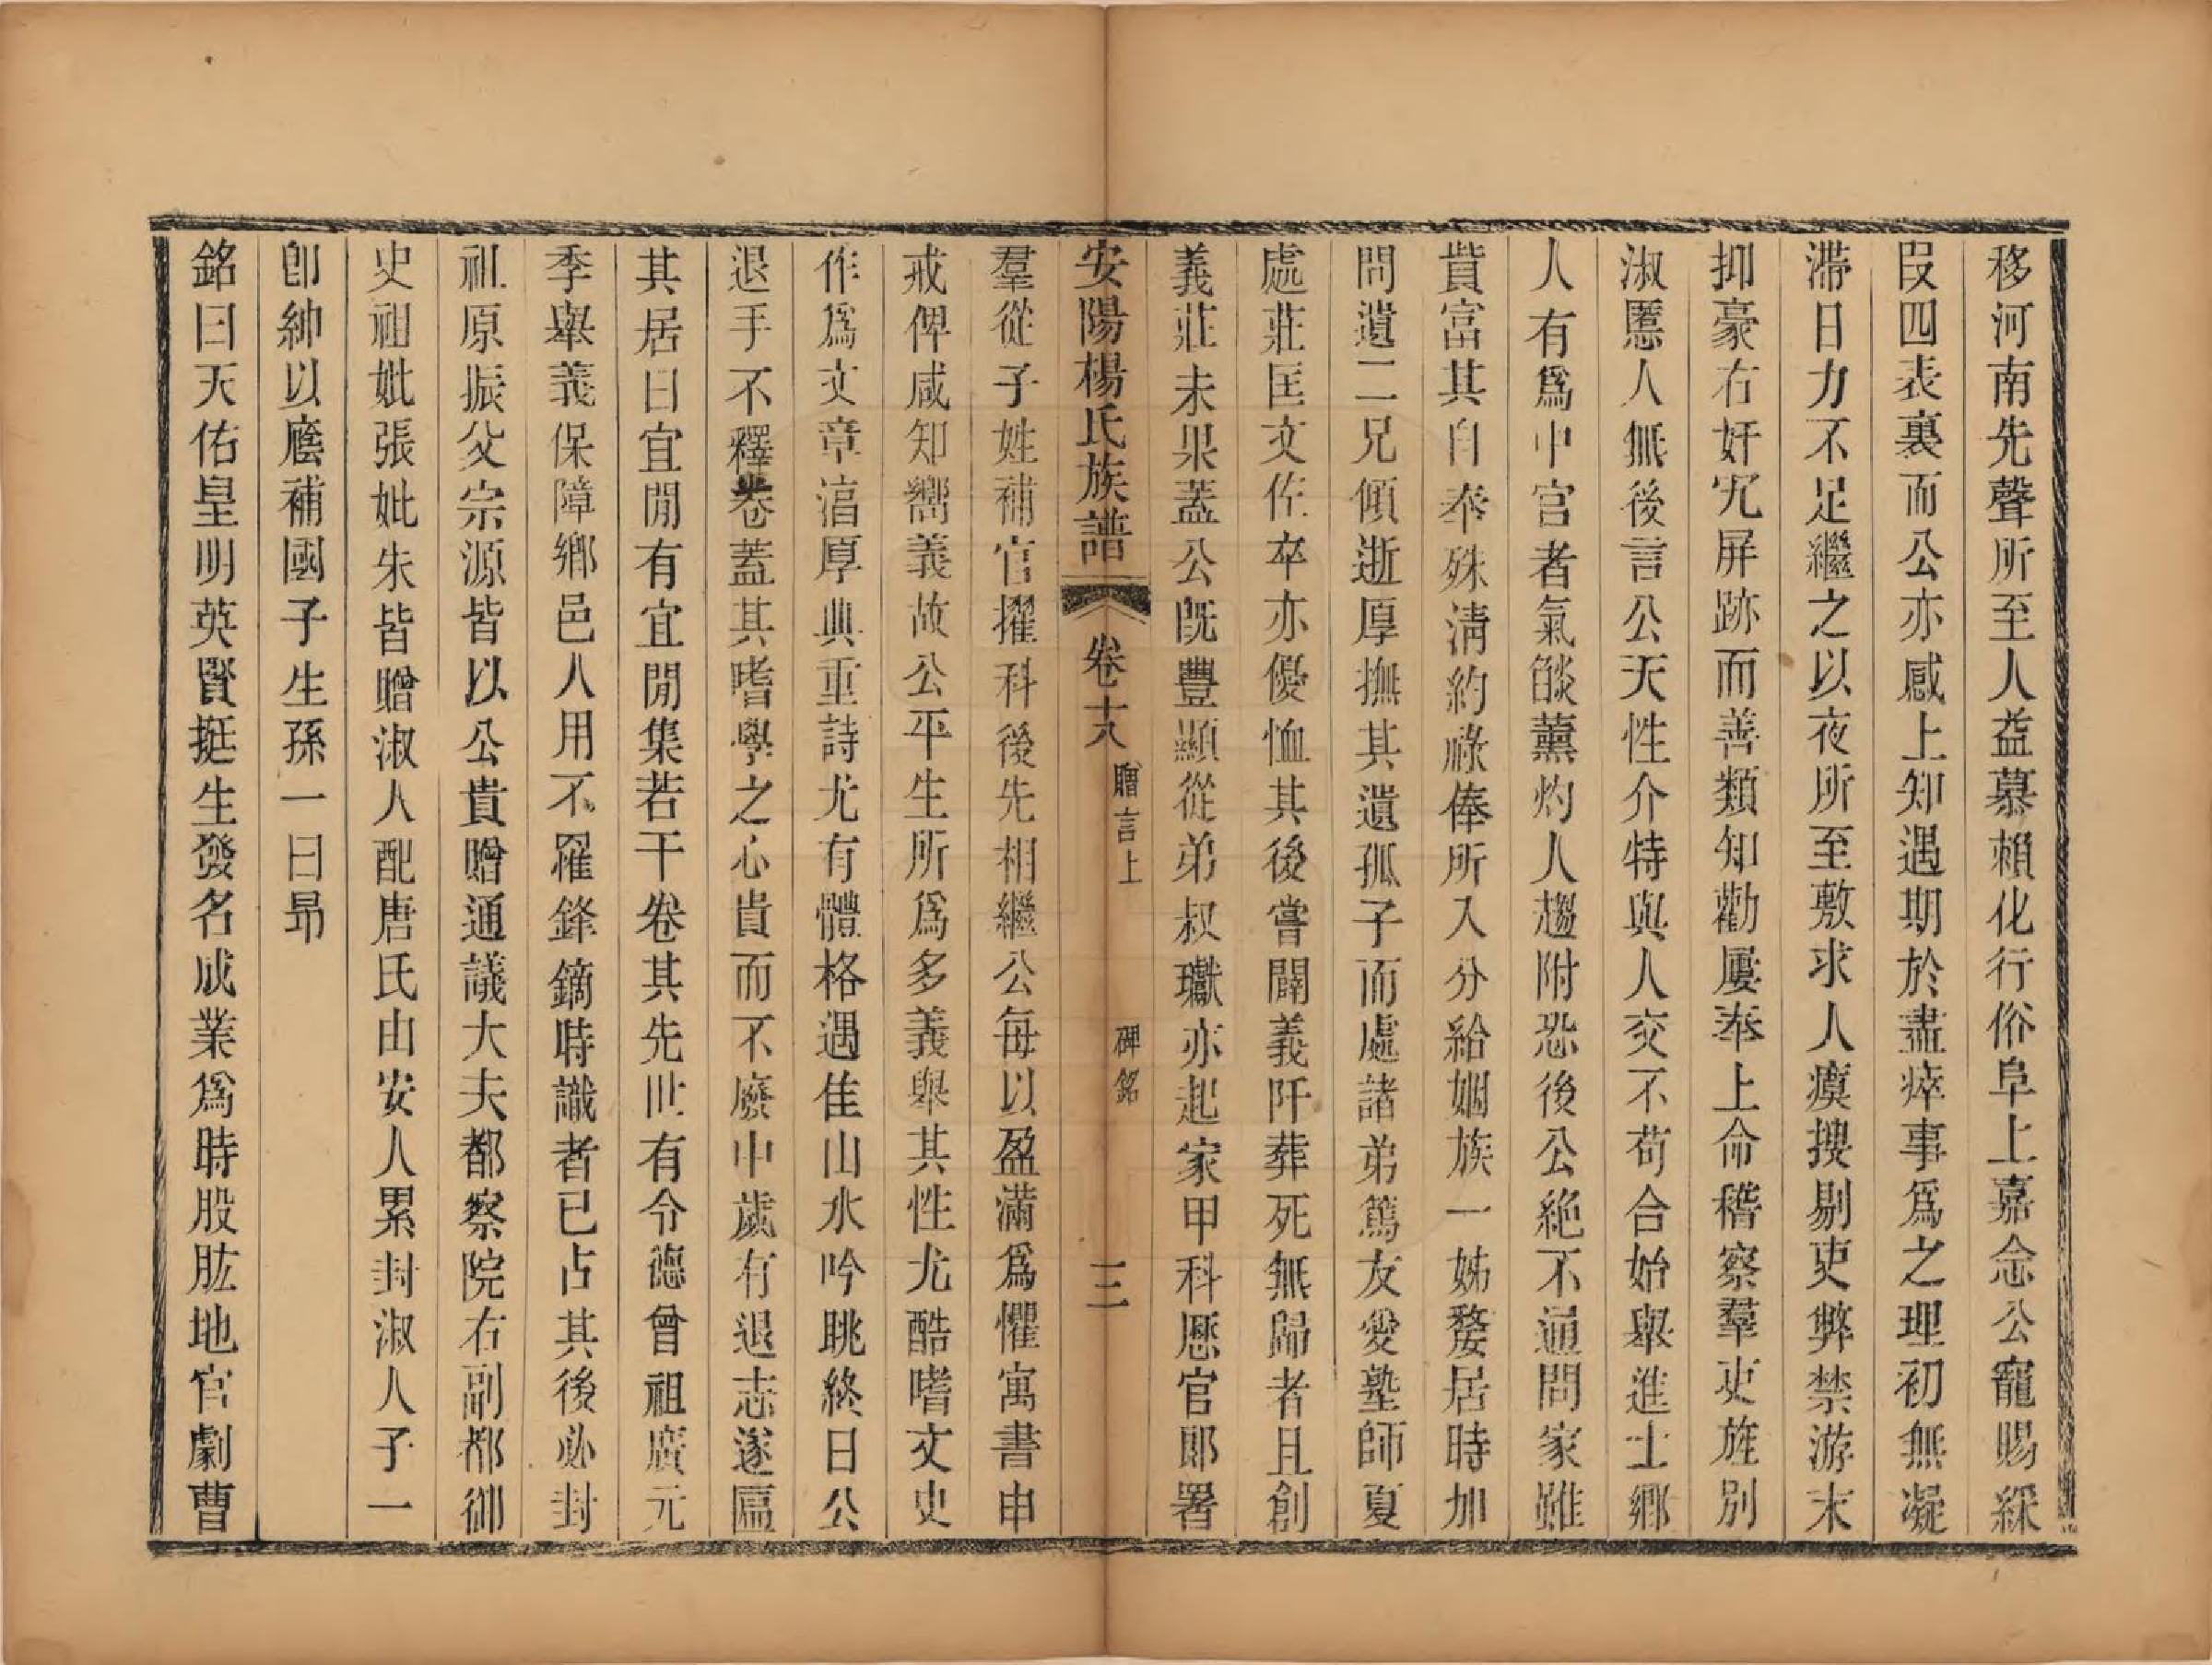 移河南先聲所至人益慕賴化行俗阜上嘉念公寵賜綵
段四表裏而公亦感上知遇期於盡瘁事爲之理初無凝
滯日力不足繼之以夜所至敷求人瘼搜剔吏弊禁游末
抑豪右奸宄屏跡而善類知勸屢奉上命稽察羣吏旌別
淑慝人無後言公天性介特與人交不苟合始舉進士鄉
人有爲中官者氣燄薰灼人趨附恐後公絶不通問家雖
貲富其自奉殊淸約祿俸所入分給姻族一姊婺居時加
問遺二兄傾逝厚撫其遺孤子而處諸弟篤友愛塾師夏
處莊匡文佐卒亦優恤其後嘗闢義阡葬死無歸者且創
義莊未果蓋公旣豐顯從弟叔璥亦起家甲科歷官郎署
安陽楊氏族譜 卷十八 贈言上 碑銘 三
羣從子姓補官擢科後先相繼公每以盈滿爲懼寓書申
戒俾咸知嚮義故公平生所爲多義舉其性尤酷嗜文史
作爲文章滀厚典重詩尤有體格遇佳山水吟眺終日公
退手不釋卷蓋其嗜學之心貴而不廢中歲有退志遂區
其居曰宜閒有宜閒集若干卷其先世有令德曾祖廣元
季舉義保障鄉邑人用不罹鋒鏑時識者已占其後必封
祖原振父宗源皆以公貴贈通議大夫都察院右副都御
史祖妣張妣朱皆贈淑人配唐氏由安人累封淑人子一
卽紳以廕補國子生孫一曰昂
銘曰天佑皇明英賢挺生發名成業爲時股肱地官劇曹